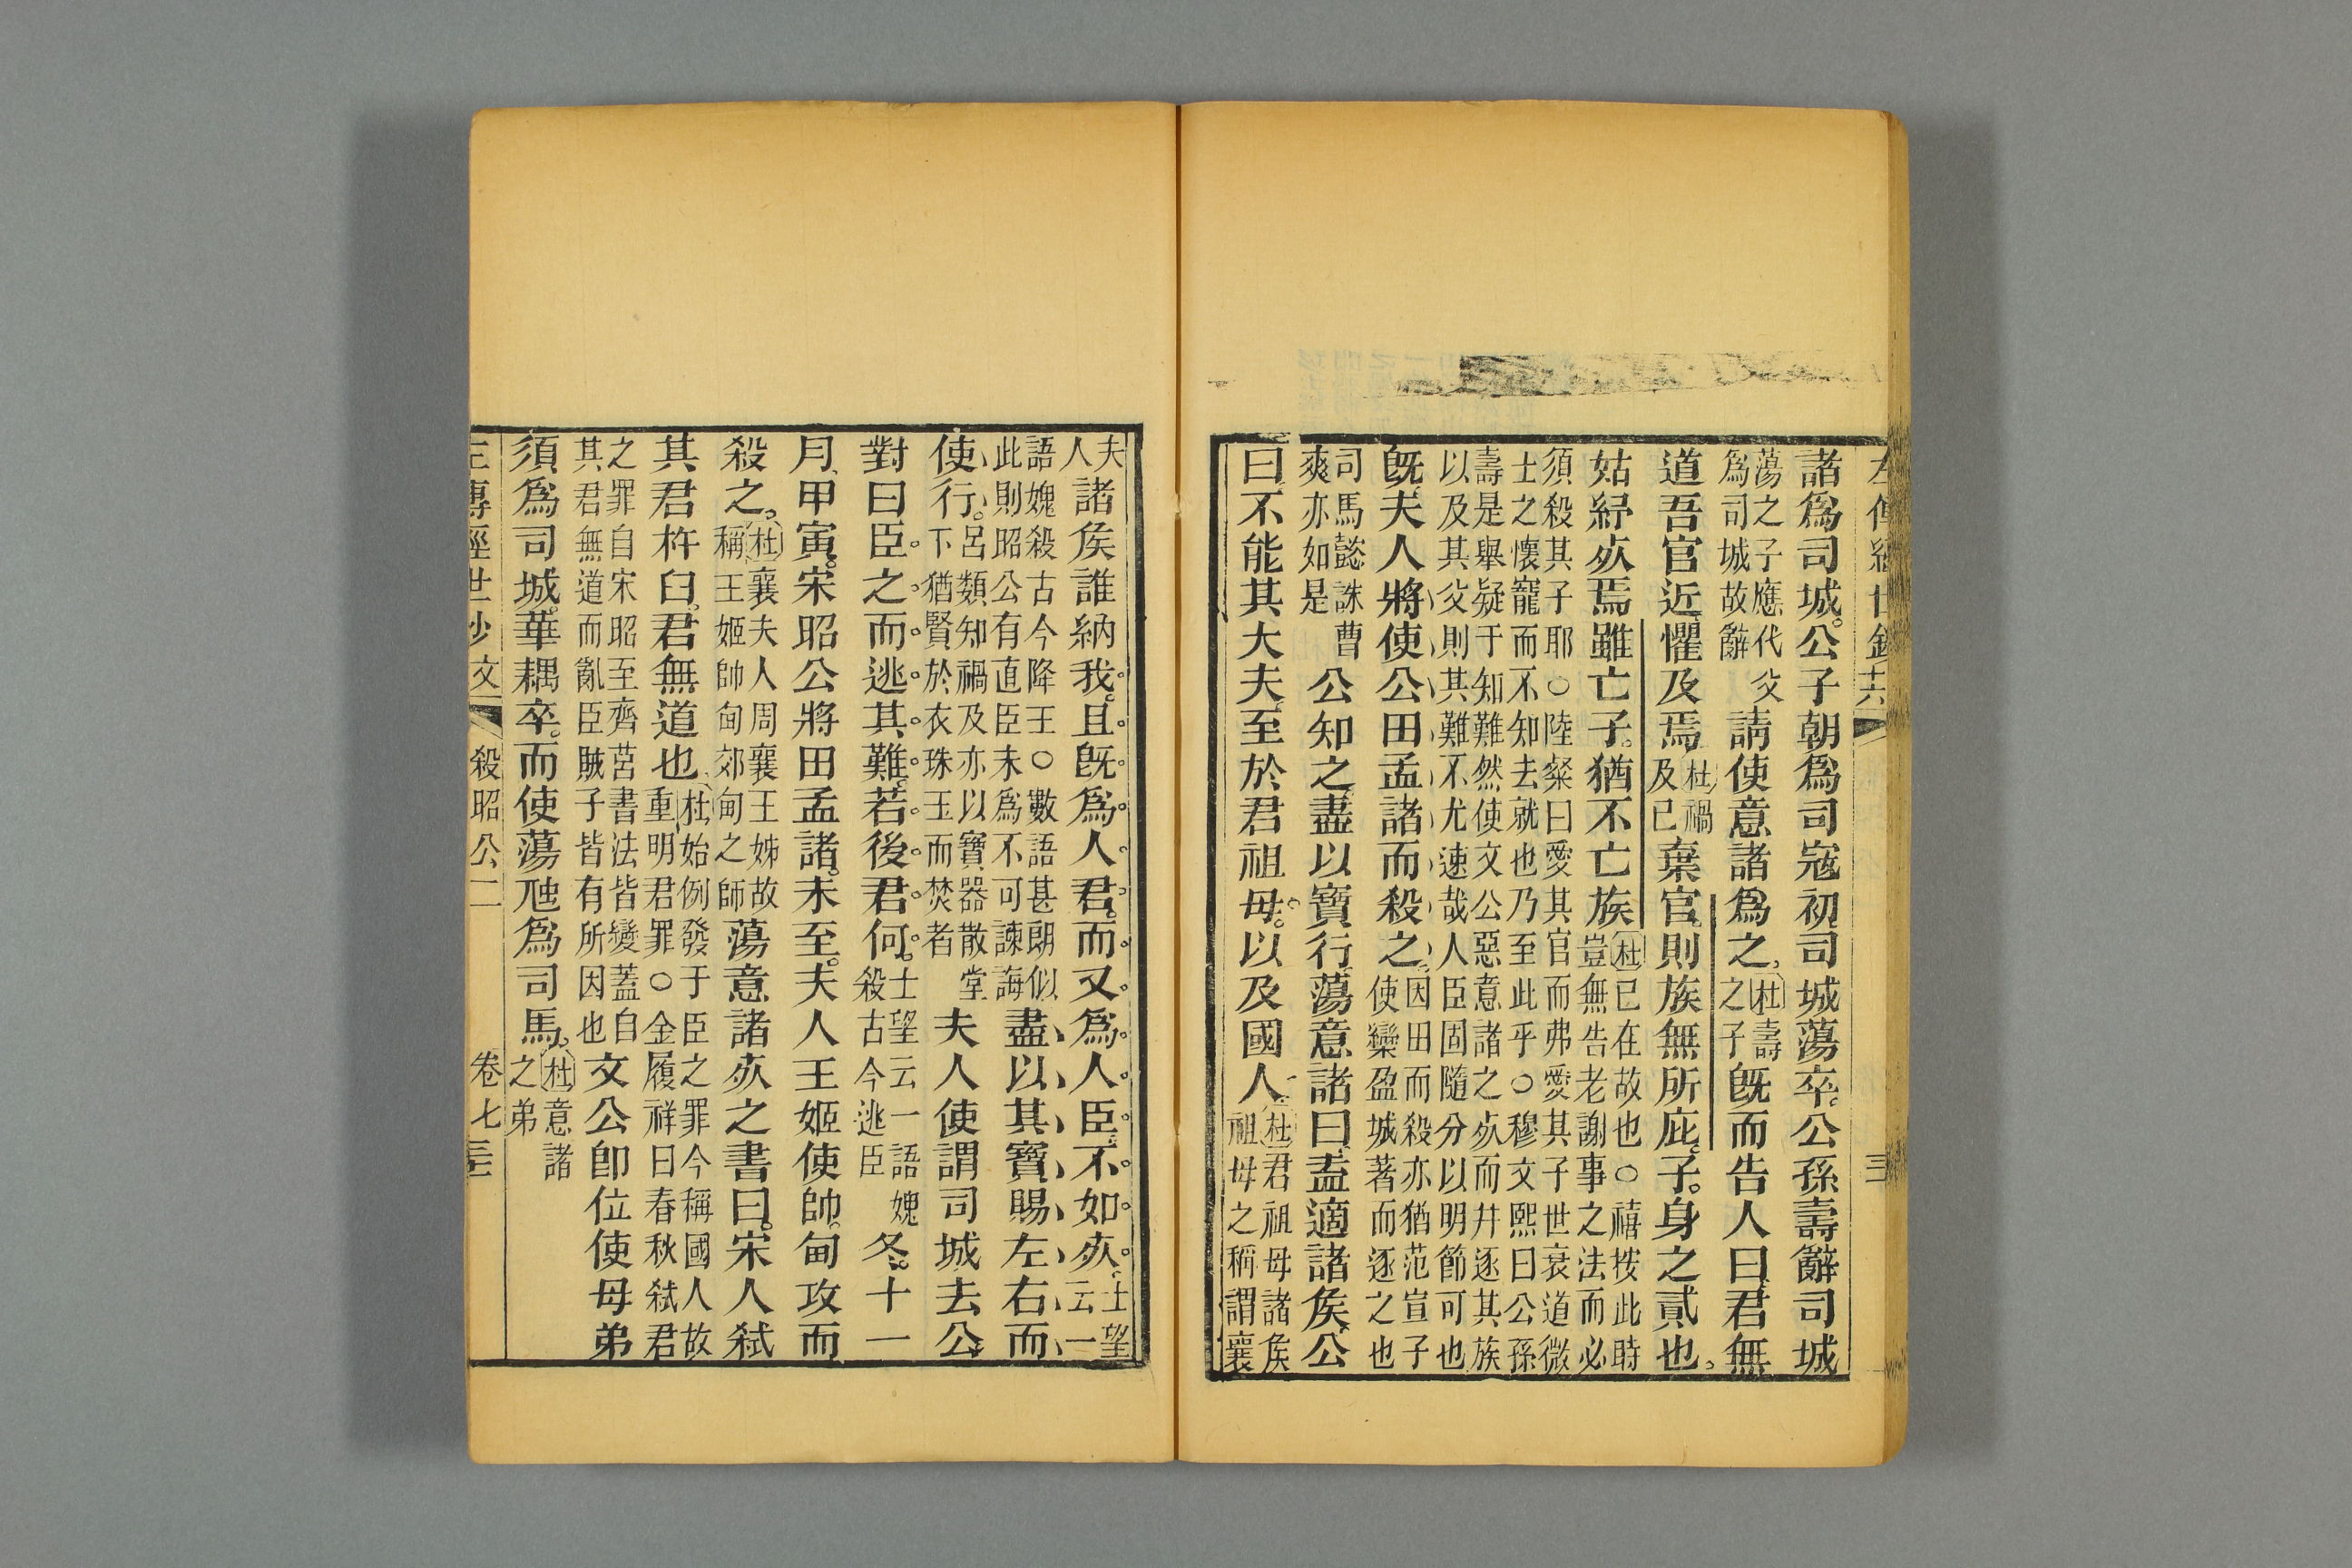 左傳經世鈔 十六 三
諸爲司城公子朝爲司寇初司城蕩卒公孫壽辭司城
蕩之子應代父
爲司城故辭
請使意諸爲之
杜壽
之子
旣而告人曰君無
道吾官近懼及焉
杜禍
及已
棄官則族無所庇子身之貳也
姑紓死焉雖亡子猶不亡族
杜已在故也○禧按此時
豈無告老謝事之法而必
須殺其子耶○陸粲曰愛其官而弗愛其子世衰道微
士之懷寵而不知去就也乃至此乎○穆文熙曰公孫
壽是舉疑于知難然使文公惡意諸之死而并逐其族
以及其父則其難不尤速哉人臣固隨分以明節可也
旣夫人將使公田孟諸而殺之
因田而殺亦猶范宣子
使欒盈城著而逐之也
司馬懿誅曹
爽亦如是
公知之盡以寶行蕩意諸曰盍適諸矦公
曰不能其大夫至於君祖母以及國人
杜君祖母諸矦
祖母之稱謂襄
夫
人
諸矦誰納我且旣爲人君而又爲人臣不如死
士望
云一
語媿殺古今降王○數語甚朗似
此則昭公有直臣未爲不可諫誨
盡以其寶賜左右而
使行
呂類知禍及亦以寶器散堂
下猶賢於衣珠玉而焚者
夫人使謂司城去公
對曰臣之而逃其難若後君何
士望云一語媿
殺古今逃臣
冬十一
月甲寅宋昭公將田孟諸未至夫人王姬使帥甸攻而
殺之
杜襄夫人周襄王姊故
稱王姬帥甸郊甸之師
蕩意諸死之書曰宋人弒
其君杵臼君無道也
杜始例發于臣之罪今稱國人故
重明君罪○金履祥曰春秋弒君
之罪自宋昭至齊莒書法皆變蓋自
其君無道而亂臣賊子皆有所因也
文公卽位使母弟
須爲司城華耦卒而使蕩虺爲司馬
杜意諸
之弟
左傳經世鈔 文 殺昭公二 卷七 三